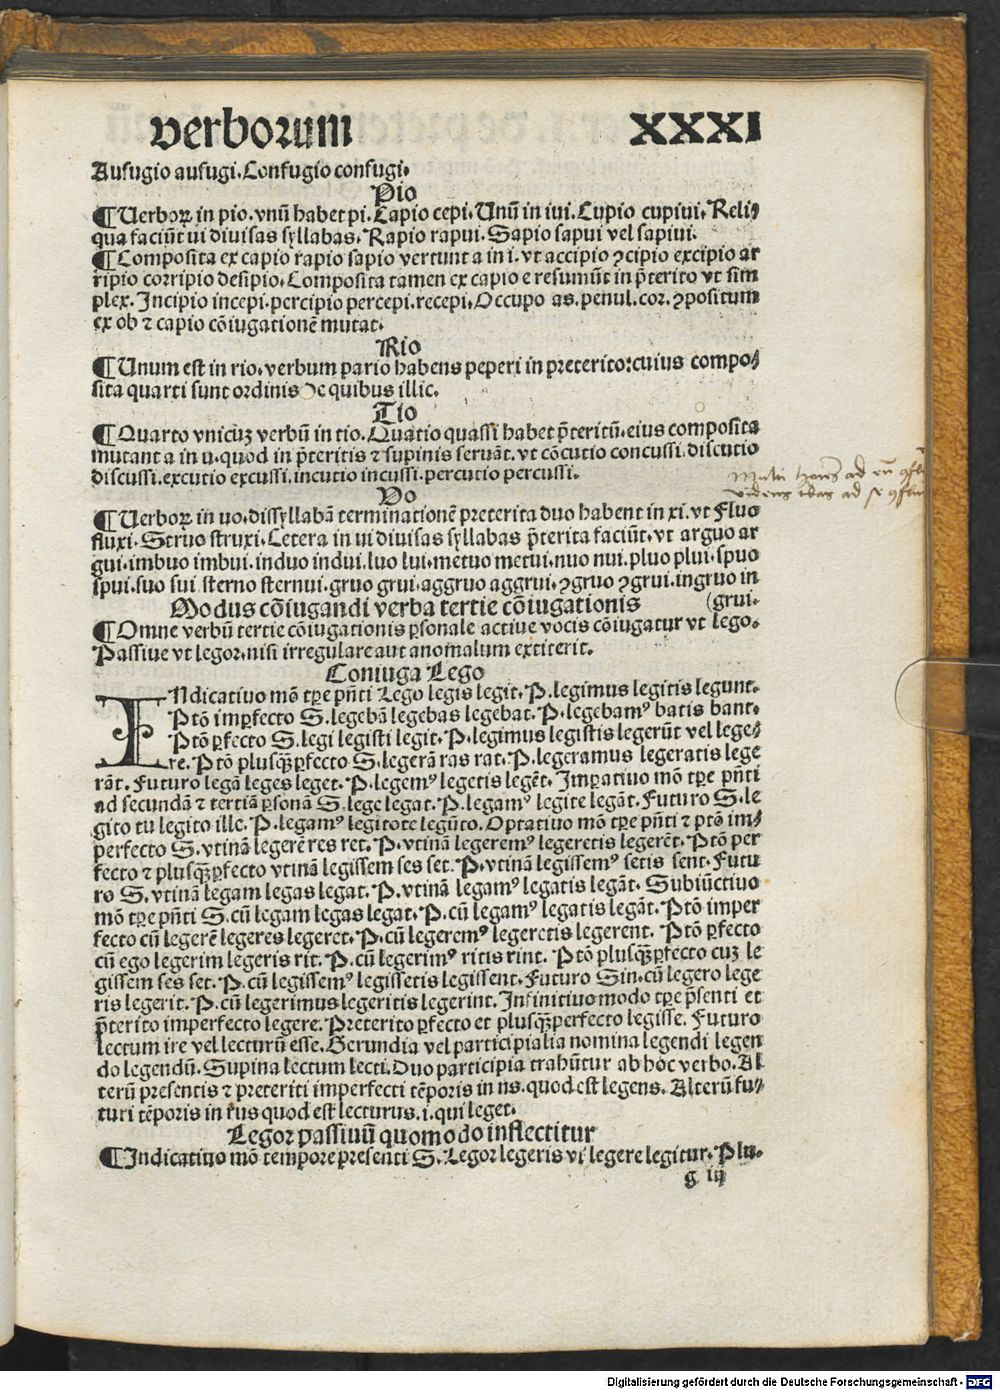 verborum XXXI
Aufugio aufugi. Confugio confugi.
Pio
¶ Verboꝝ in pio. vnū habet pi. Capio cepi. Unū in iui. Cupio cupiui. Reli⸗
qua faciūt ui diuisas syllabas. Rapio rapui. Sapio sapui vel sapiui.
¶ Composita ex capio rapio sapio vertunt a in i. vt accipio ꝯcipio excipio ar
ripio corripio desipio. Composita tamen ex capio e resumūt in p̄terito vt sim
plex. Incipio incepi. percipio percepi. recepi. Occupo as. penul. cor. ꝯpositum
ex ob ⁊ capio cōiugationē mutat.
Rio
¶ Unum est in rio. verbum pario habens peperi in preterito: cuius compo⸗
sita quarti sunt ordinis de quibus illic.
Tio
¶ Quarto vnicuꝫ verbū in tio. Quatio quassi habet p̄teritū. eius composita
mutant a in u. quod in p̄teritis ⁊ supinis seruāt. vt cōcutio concussi. discutio
discussi. excutio excussi. incutio incussi. percutio percussi.
Vo
¶ Verboꝝ in uo. dissyllabā terminationē preterita duo habent in xi. vt Fluo
fluxi. Struo struxi. Cetera in ui diuisas syllabas p̄terita faciūt. vt arguo ar
gui. imbuo imbui. induo indui. luo lui. metuo metui. nuo nui. pluo plui. spuo
spui. suo sui sterno sternui. gruo grui. aggruo aggrui. ꝯgruo ꝯgrui. ingruo in
Modus cōiugandi verba tertie cōiugationis (grui.
¶ Omne verbū tertie cōiugationis ꝑsonale actiue vocis cōiugatur vt lego.
Passiue vt legor. nisi irregulare aut anomalum extiterit.
Coniuga Lego
INdicatiuo mō tꝑe pn̄ti Lego legis legit. P. legimus legitis legunt.
Ptō imꝑfecto S. legebā legebas legebat. P. legebamꝰ batis bant.
Ptō ꝑfecto S. legi legisti legit. P. legimus legistis legerūt vel lege⸗
re. Ptō plusq̄ꝑfecto S. legerā ras rat. P. legeramus legeratis lege
rāt. Futuro legā leges leget. P. legemꝰ legetis legēt. Imꝑatiuo mō tꝑe pn̄ti
ad secundā ⁊ tertiā ꝑsonā S. lege legat. P. legamꝰ legite legāt. Futuro S. le
gito tu legito ille. P. legamꝰ legitote legūto. Optatiuo mō tꝑe pn̄ti ⁊ ptō im⸗
perfecto S. vtinā legerē res ret. P. vtinā legeremꝰ legeretis legerēt. Ptō per
fecto ⁊ plusq̄ꝑfecto vtinā legissem ses set. P. vtinā legissemꝰ setis sent. Futu
ro S. vtinā legam legas legat. P. vtinā legamꝰ legatis legāt. Subiūctiuo
mō tꝑe pn̄ti S. cū legam legas legat. P. cū legamꝰ legatis legāt. Ptō imper
fecto cū legerē legeres legeret. P. cū legeremꝰ legeretis legerent. Ptō ꝑfecto
cū ego legerim legeris rit. P. cū legerimꝰ ritis rint. Ptō plusq̄ꝑfecto cuꝫ le
gissem ses set. P. cū legissemꝰ legissetis legissent. Futuro Sin. cū legero lege
ris legerit. P. cū legerimus legeritis legerint. Infinitiuo modo tꝑe p̄senti et
p̄terito imperfecto legere. Preterito ꝑfecto et plusq̄perfecto legisse. Futuro
lectum ire vel lecturū esse. Gerundia vel participialia nomina legendi legen
do legendū. Supina lectum lecti. Duo participia trahūtur ab hoc verbo. Al
terū presentis ⁊ preteriti imperfecti tēporis in ns. quod est legens. Alterū fu⸗
turi tēporis in rus quod est lecturus. i. qui leget.
Legor passiuū quomodo inflectitur
¶ Indicatiuo mō tempore presenti S. Legor legeris vel legere legitur. Plu.
g iij
Digitalisierung gefördert durch die Deutsche Forschungsgemeinschaft - DFG